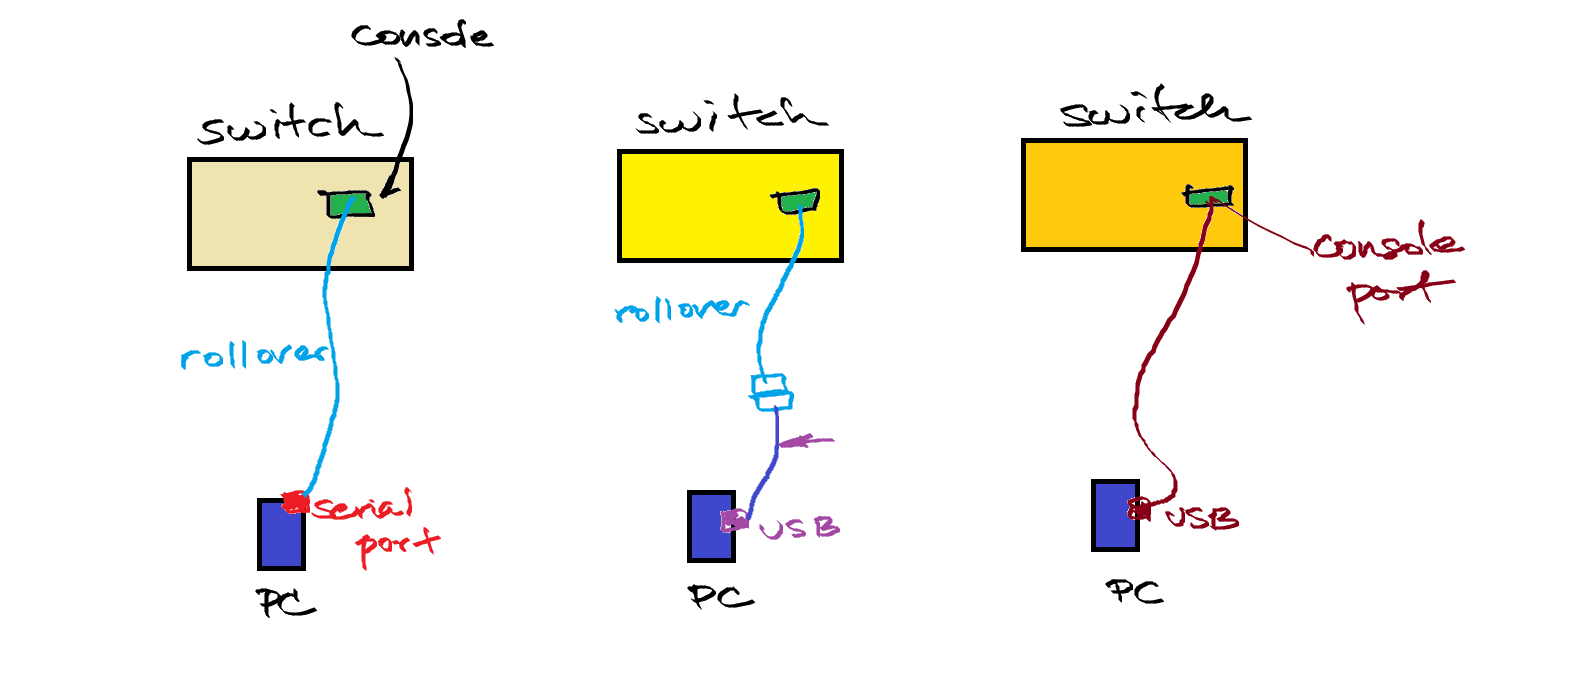 console
switch
rollover
serial
port
PC
switch
rollover
USB
PC
switch
console
port
USB
PC